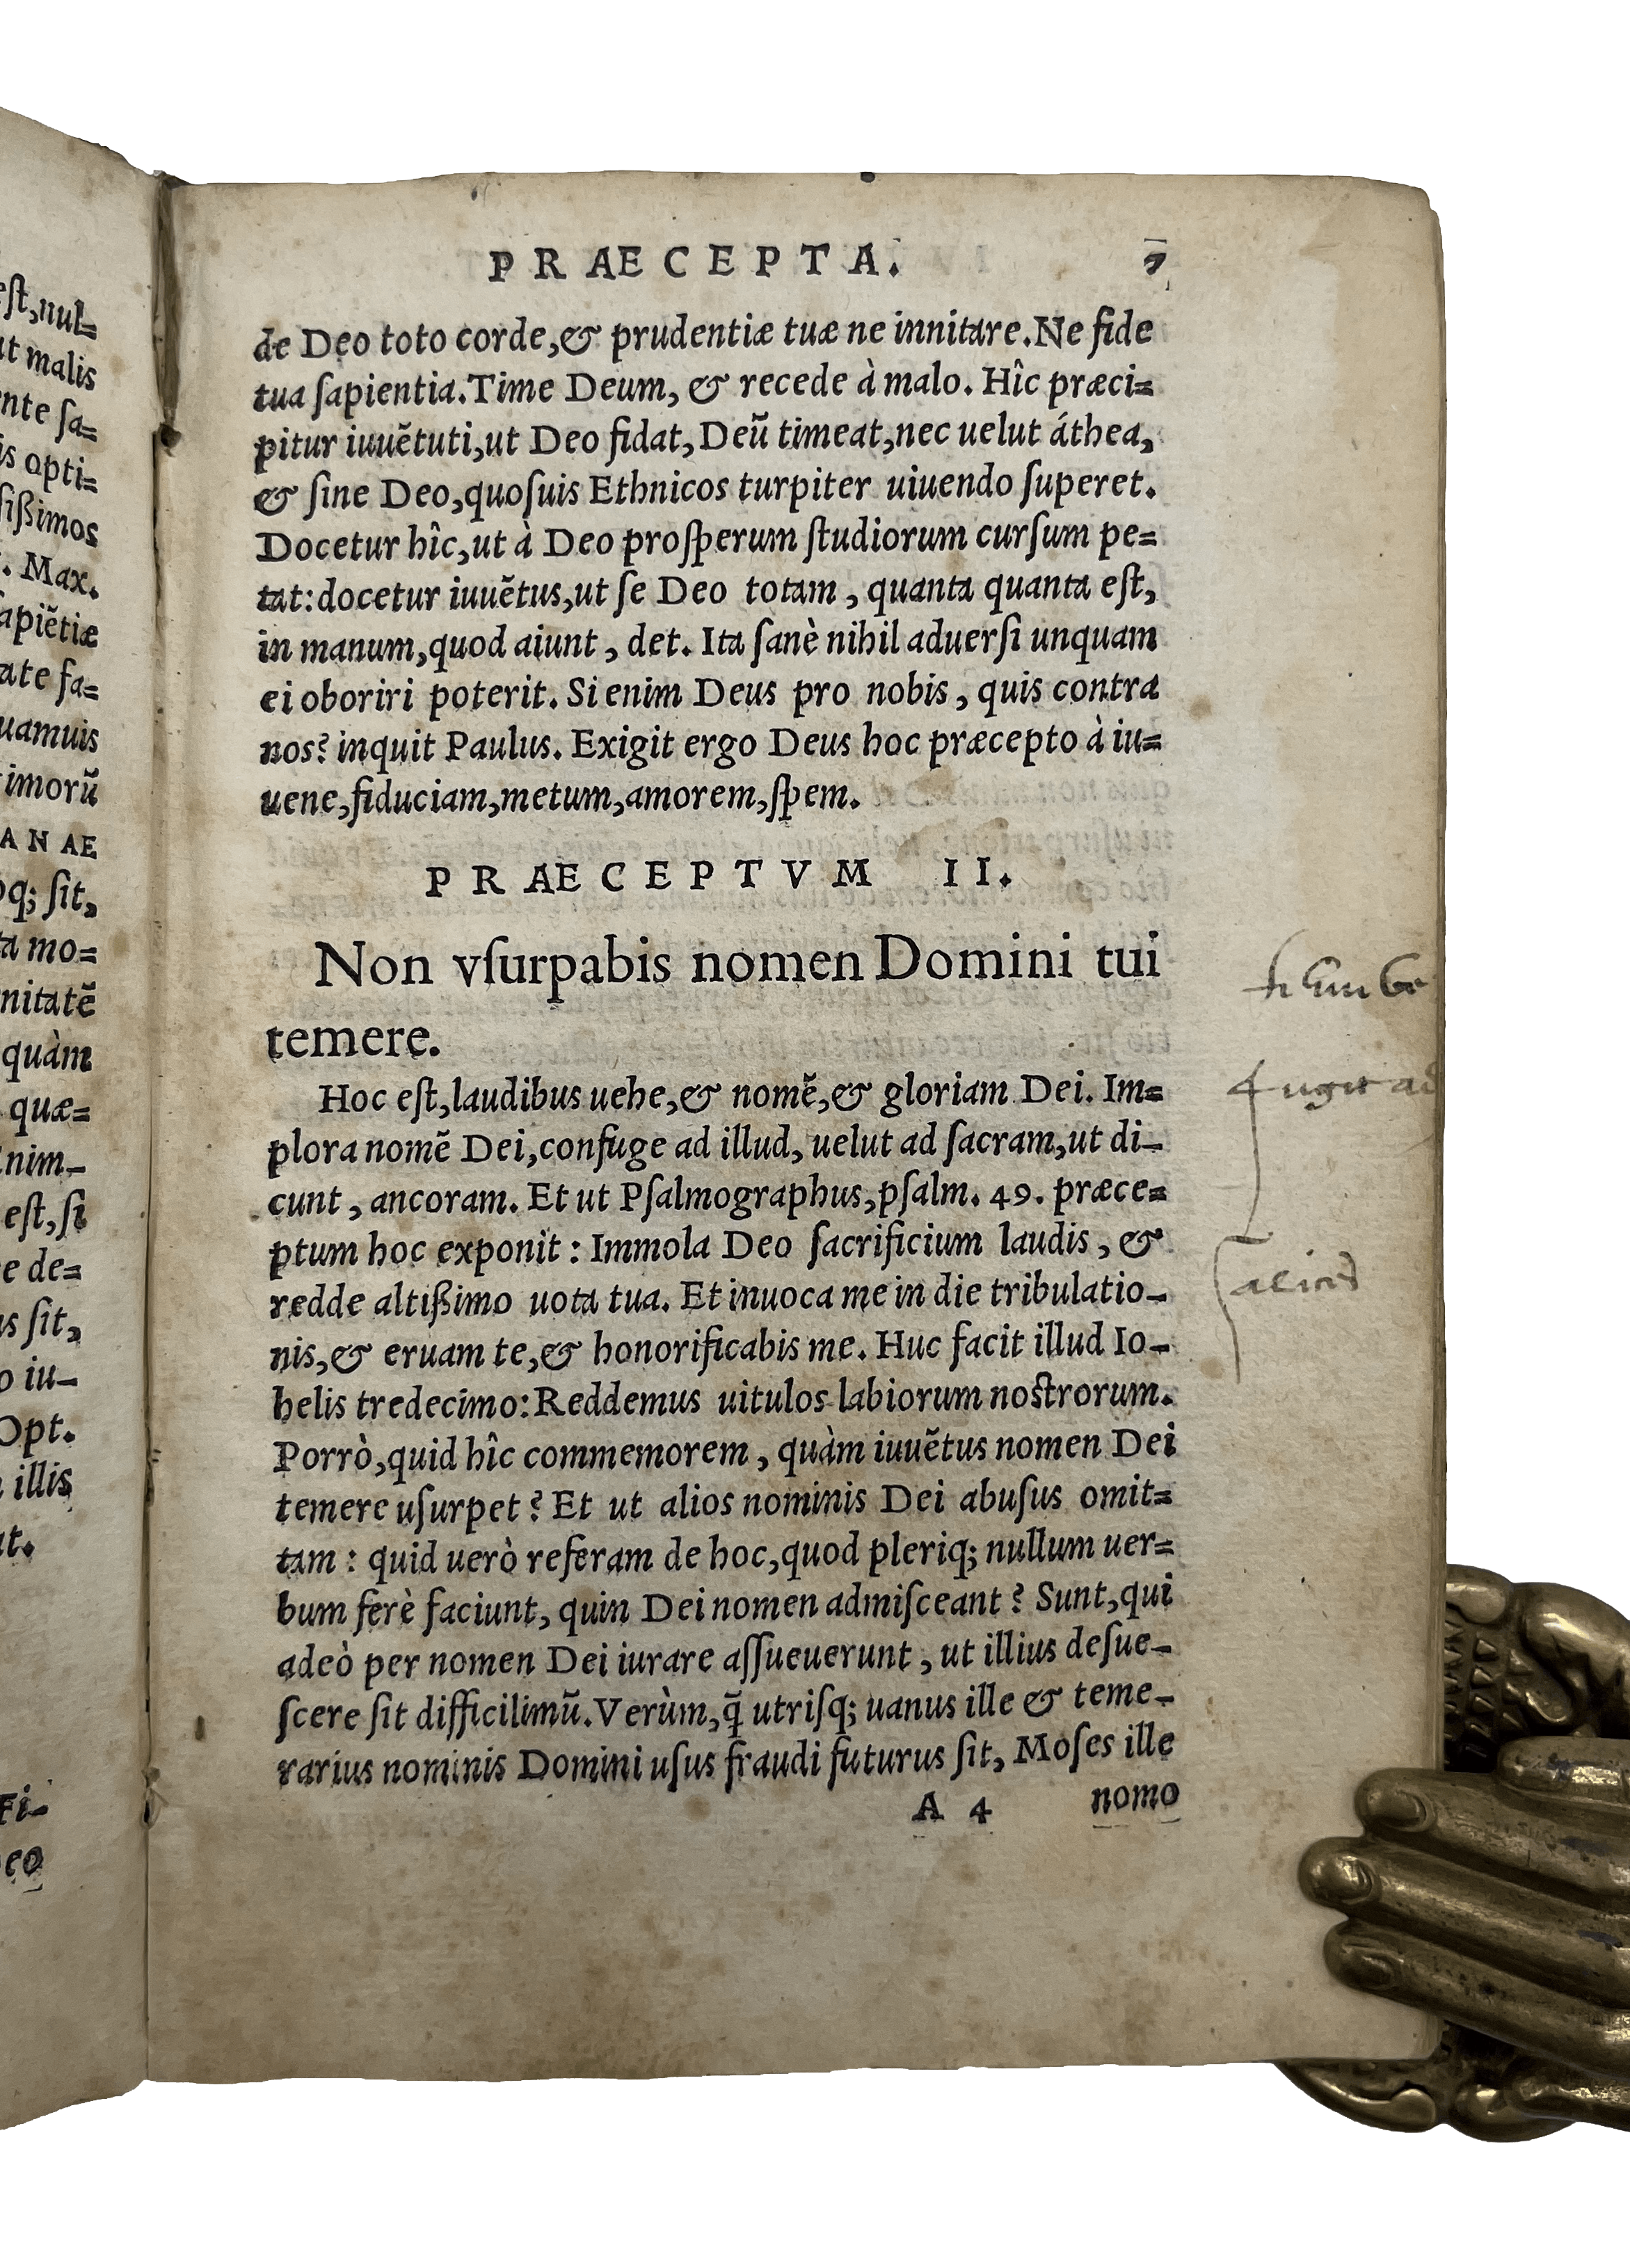 est, nul=
ut malis
nte ſa=
is opti=
ſißimos
. Max.
ſapiẽtiæ
ate fa=
uamuis
timorũ
A N AE
oq; ſit,
ta mo=
nitatẽ
quàm
quæ=
nim-
est, ſi
e de=
us ſit,
o iu-
Opt.
illis
at.
Fi-
eo
P R AE C E P T A. 7
de Deo toto corde, & prudentiæ tuæ ne innitare. Ne fide
tua ſapientia. Time Deum, & recede à malo. Hîc præci=
pitur iuuẽtuti, ut Deo fidat, Deũ timeat, nec uelut áthea,
& ſine Deo, quoſuis Ethnicos turpiter uiuendo ſuperet.
Docetur hîc, ut à Deo proſperum ſtudiorum curſum pe=
tat: docetur iuuẽtus, ut ſe Deo totam, quanta quanta eſt,
in manum, quod aiunt, det. Ita ſanè nihil aduerſi unquam
ei oboriri poterit. Si enim Deus pro nobis, quis contra
nos? inquit Paulus. Exigit ergo Deus hoc præcepto à iu=
uene, fiduciam, metum, amorem, ſpem.
P R AE C E P T V M II.
Non vſurpabis nomen Domini tui
temere.
Hoc eſt, laudibus uehe, & nomẽ, & gloriam Dei. Im=
plora nomẽ Dei, confuge ad illud, uelut ad ſacram, ut di-
cunt, ancoram. Et ut Pſalmographus, pſalm. 49. præce=
ptum hoc exponit: Immola Deo ſacrificium laudis, &
redde altißimo uota tua. Et inuoca me in die tribulatio-
nis, & eruam te, & honorificabis me. Huc facit illud Io-
helis tredecimo: Reddemus uitulos labiorum noſtrorum.
Porrò, quid hîc commemorem, quàm iuuẽtus nomen Dei
temere uſurpet? Et ut alios nominis Dei abuſus omit=
tam: quid uerò referam de hoc, quod pleriq; nullum uer=
bum ferè faciunt, quin Dei nomen admiſceant? Sunt, qui
adeò per nomen Dei iurare aſſueuerunt, ut illius deſue-
ſcere ſit difficilimũ. Verùm, q̃ utriſq; uanus ille & teme-
rarius nominis Domini uſus fraudi futurus ſit, Moſes ille
A 4 nomo